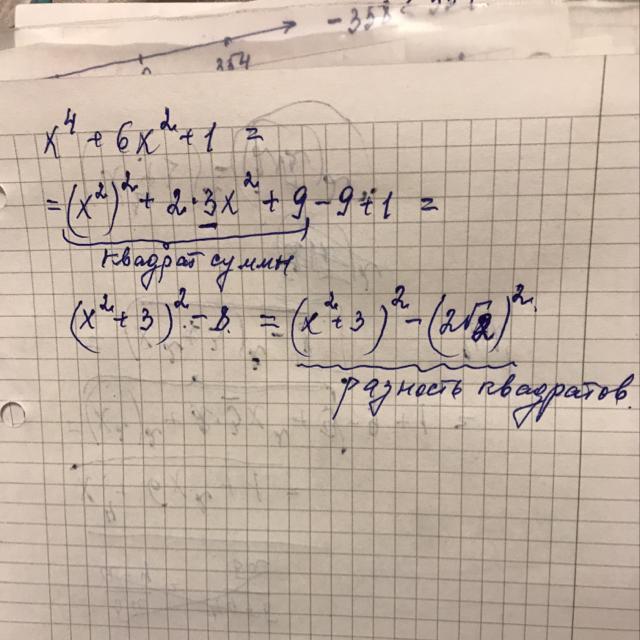 -358 < 351
354
x⁴ + 6x² + 1 =
= (x²)² + 2·3x² + 9 - 9 + 1 =
квадрат суммы
(x² + 3)² - 8 = (x² + 3)² - (2√2)²
разность квадратов.